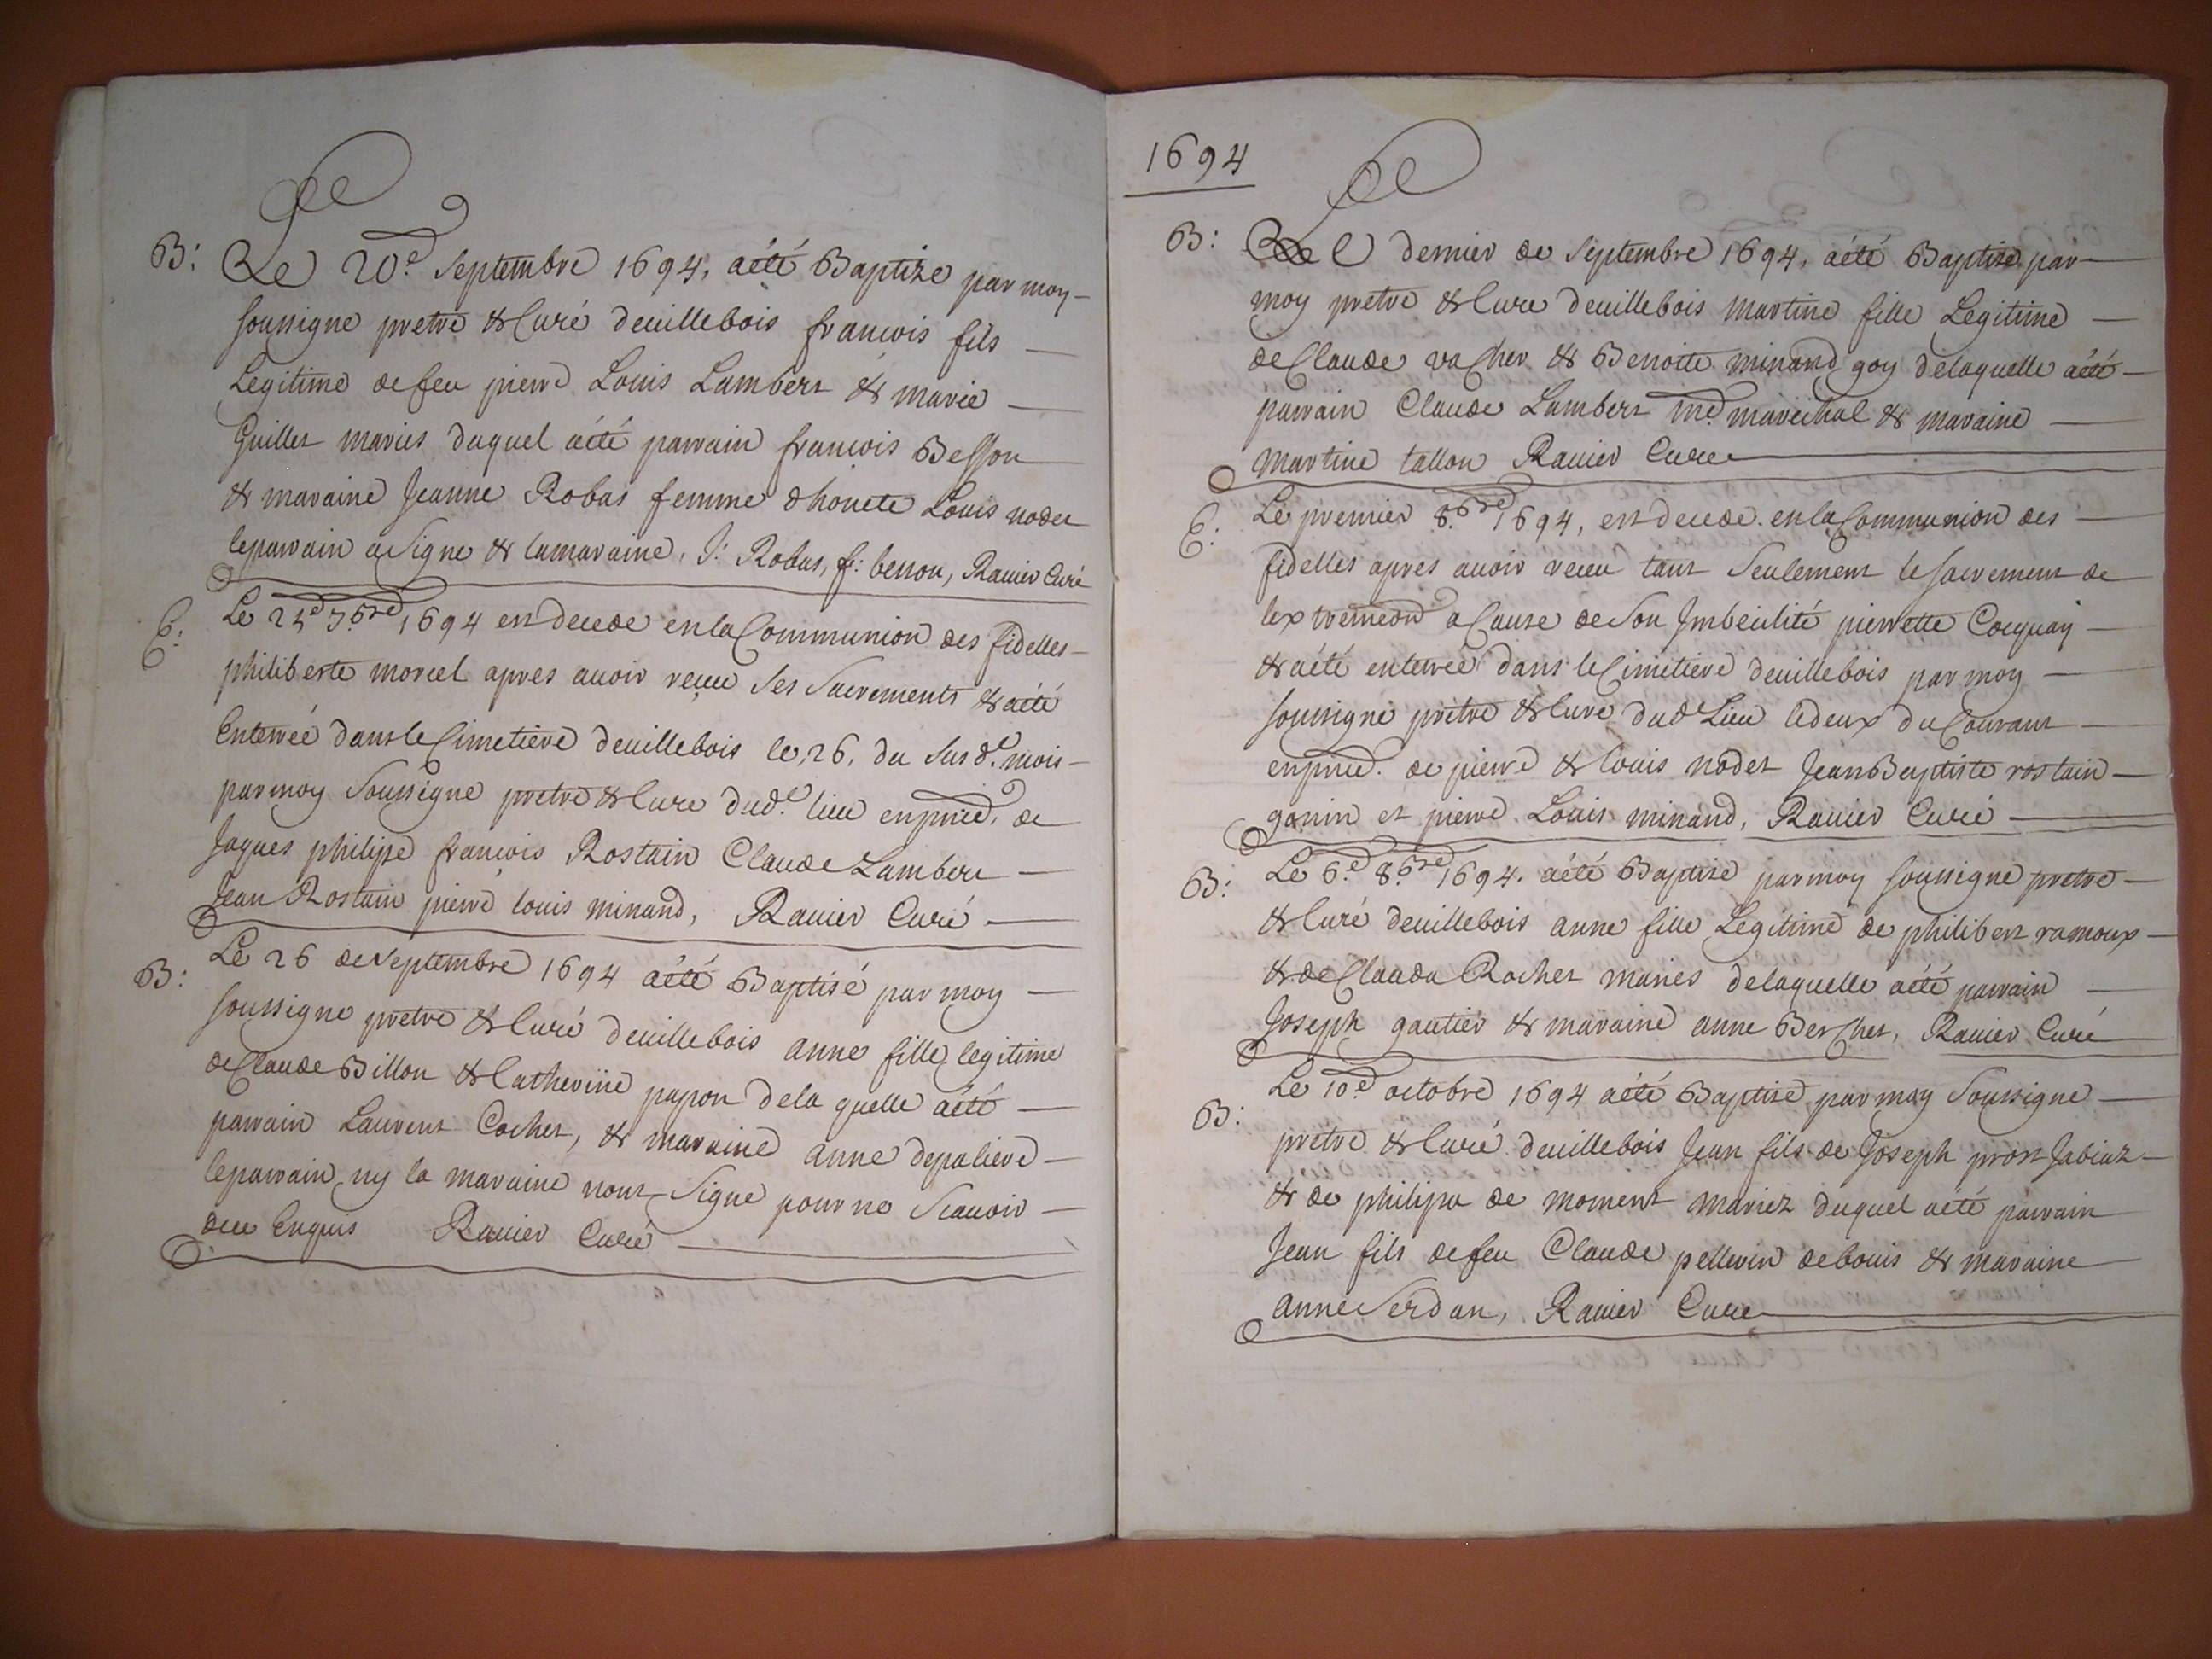 B: Le 20e. Septembre 1694, aété Baptize par moy
soussigne pretre & Curé deuillebois francois fils
Legitime de feu pierre Louis Lambert & marie
Guillet maries duquel aété parrain francois Besson
& maraine Jeanne Robas femme dhonete Louis nodet
leparrain a Signe & lamaraine, J: Robas, fr: besson, Rauier Curé
E: Le 25e 7.bre 1694 est decede enla Communion des fidelles
philiberte morcel apres auoir reçeu Ses Sacrements & aété
Enterrée dans le Cimetiere deuillebois le, 26, du Susd.e mois
par moy Soussigne pretre & Cure dud.e lieu enpnce, de
Jaques philipe francois Rostain Claude Lambert
Jean Rostain pierre louis minand, Rauier Curé
B: Le 26 de Septembre 1694 aété Baptisé par moy
soussigne pretre & Curé deuillebois anne fille legitime
de Claude Billon & Catherine papon dela quelle aété
parrain Laurent Cochet, & maraine anne depaliere
leparrain ny la maraine nont Signe pour ne Scauoir
deu Enquis Rauier Curé
1694
B: Le dernier de Septembre 1694, aété Baptise par
moy pretre & Cure deuillebois martine fille Legitime
de Claude vacher & Benoite minand goy delaquelle aété
parrain Claude Lambert md. maréchal & maraine
martine tallon Rauier Cure
E: Le premier 8.bre 1694, est decede. enla Communion des
fidelles apres auoir receu tant Seulement le Sacrement de
lextremeon a Cause de Son Jmbécilité pierrette Cocquay
& aété enterrée dans le Cimetiere deuillebois par moy
soussigné prêtre & Cure dud.e Lieu ledeux du Courant
enpnce. de pierre & Louis nodet Jean Baptiste rostain
gonin et pierre Louis minand, Rauier Curé
B: Le 6.e 8.bre 1694. aété Baptise par moy soussigne pretre
& Curé deuillebois anne fille Legitime de philibert ramoux
& de Clauda Rochet maries delaquelle aété parrain
Joseph gautier & maraine anne Berchet, Rauier Curé
B: Le 10.e octobre 1694 aété Baptise par moy Soussigne
prêtre & Curé deuillebois Jean fils de Joseph prost Jabiaz
& de philipa de moment mariez duquel aété parrain
Jean fils de feu Claude pellerin debouis & maraine
anne Serdan, Rauier Cure